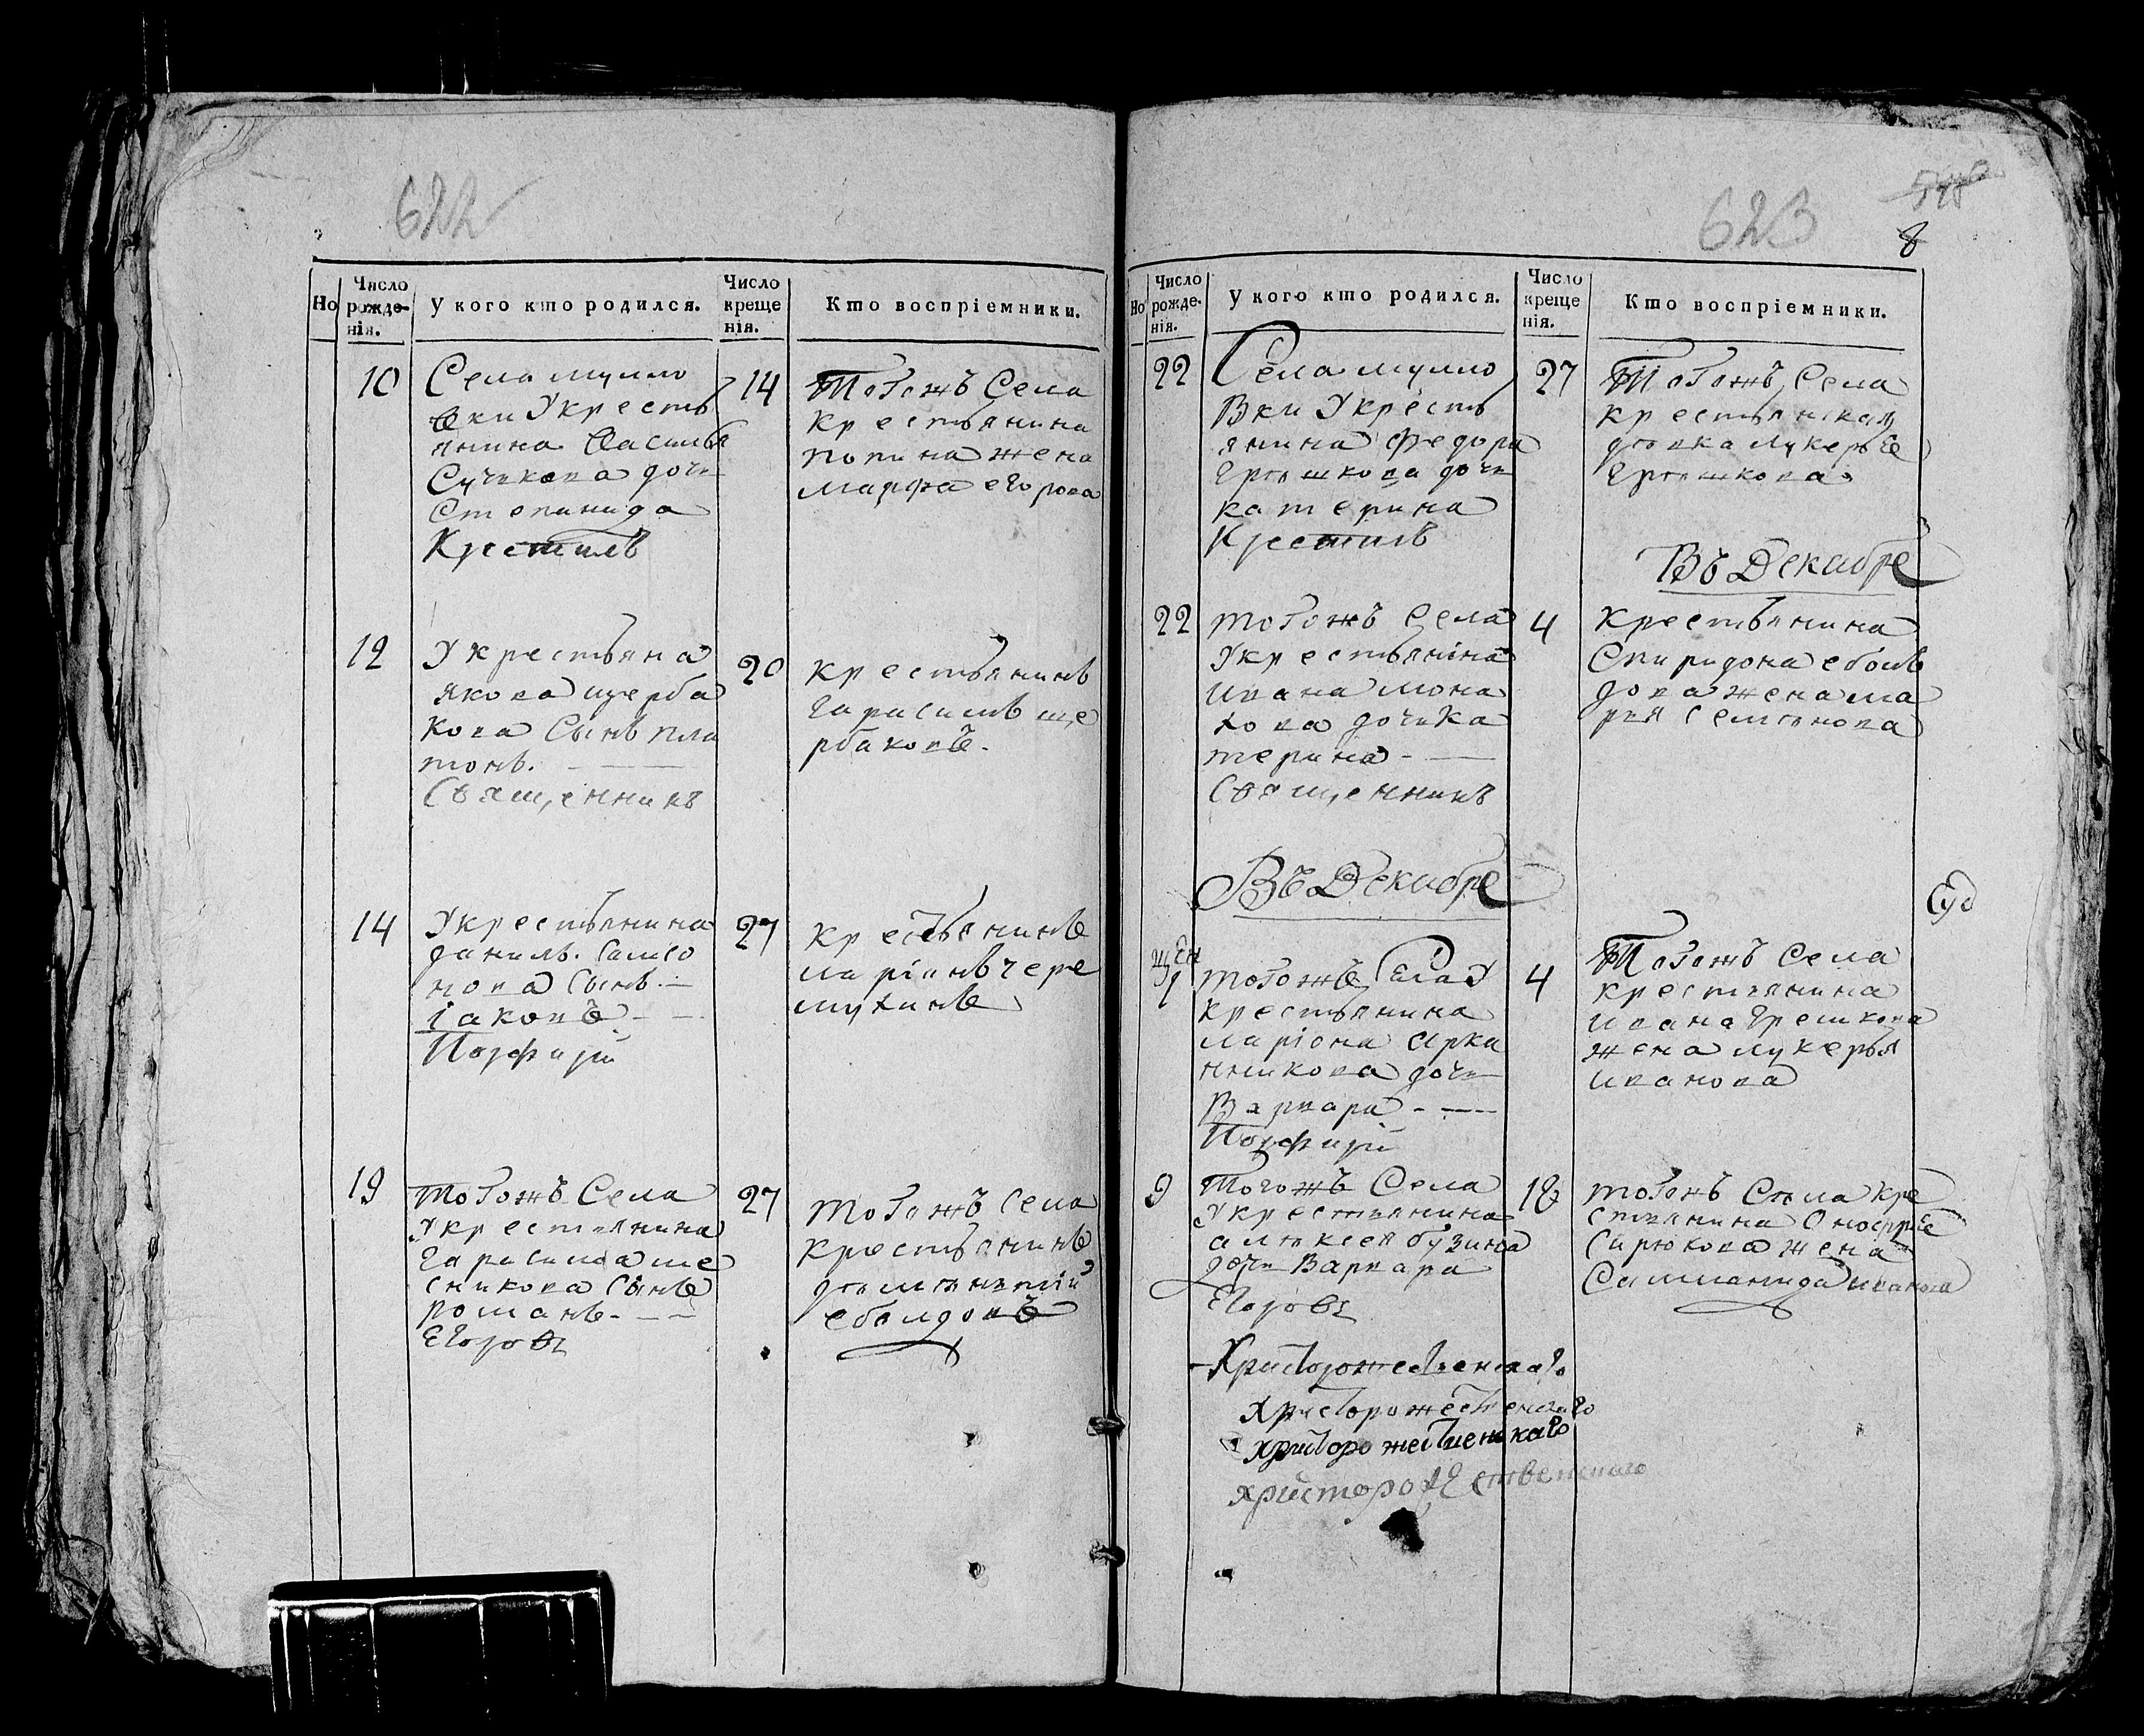 622
Но
Число рожденія.
У кого кто родился.
Число крещенія.
Кто воспріемники.
10
Села мулло
вки Укресть
янина Василья
Сучкова дочь
Степанида
Крестилъ
14
Тогожъ Села
крестьянина
попина жена
марфа егорова
12
Укрестьяна
якова щерба
кова Сынъ пла
тонъ.
Священникъ
20
крестьянинъ
гарасимъ ще
рбаковъ.
14
Укрестьянина
данилы Самсо
нова Сынъ
іаковъ
Порфирій
27
крестьянинъ
ларіонъ чере
мухинъ
19
Тогожъ Села
Укрестьянина
гарасима ме
сникова Сынъ
романъ
Егоровъ
27
тогожъ Села
крестьянинъ
дементий
23
623
8
Но
Число рожденія.
У кого кто родился.
Число крещенія.
Кто воспріемники.
22
Села мулло
вки Укресть
янина Федора
дочь
катерина
Крестилъ
27
Тогожъ Села
крестьянская
девка лукерье
22
тогожъ Села
Укрестьянина
ивана мона
хова дочь ка
терина
Священникъ
Въ Декабре
4
крестьянина
Спиридона
жена ма
рия семенова
Въ Декабре
1
тогожъ Села У
крестьянина
ларіона
дочь
Варвара
Порфирій
4
Тогожъ Села
крестьянина
ивана грешкова
жена лукерья
иванова
9
Тогожъ Села
Укрестьянина
алексея бузина
дочь Варвара
Егоровъ
18
тогожъ Села кре
стьянина Онофрие
Сирюкова жена
иванова
Христорожественскаго
Христорожественскаго
христорожественскаго
христорожественскаго